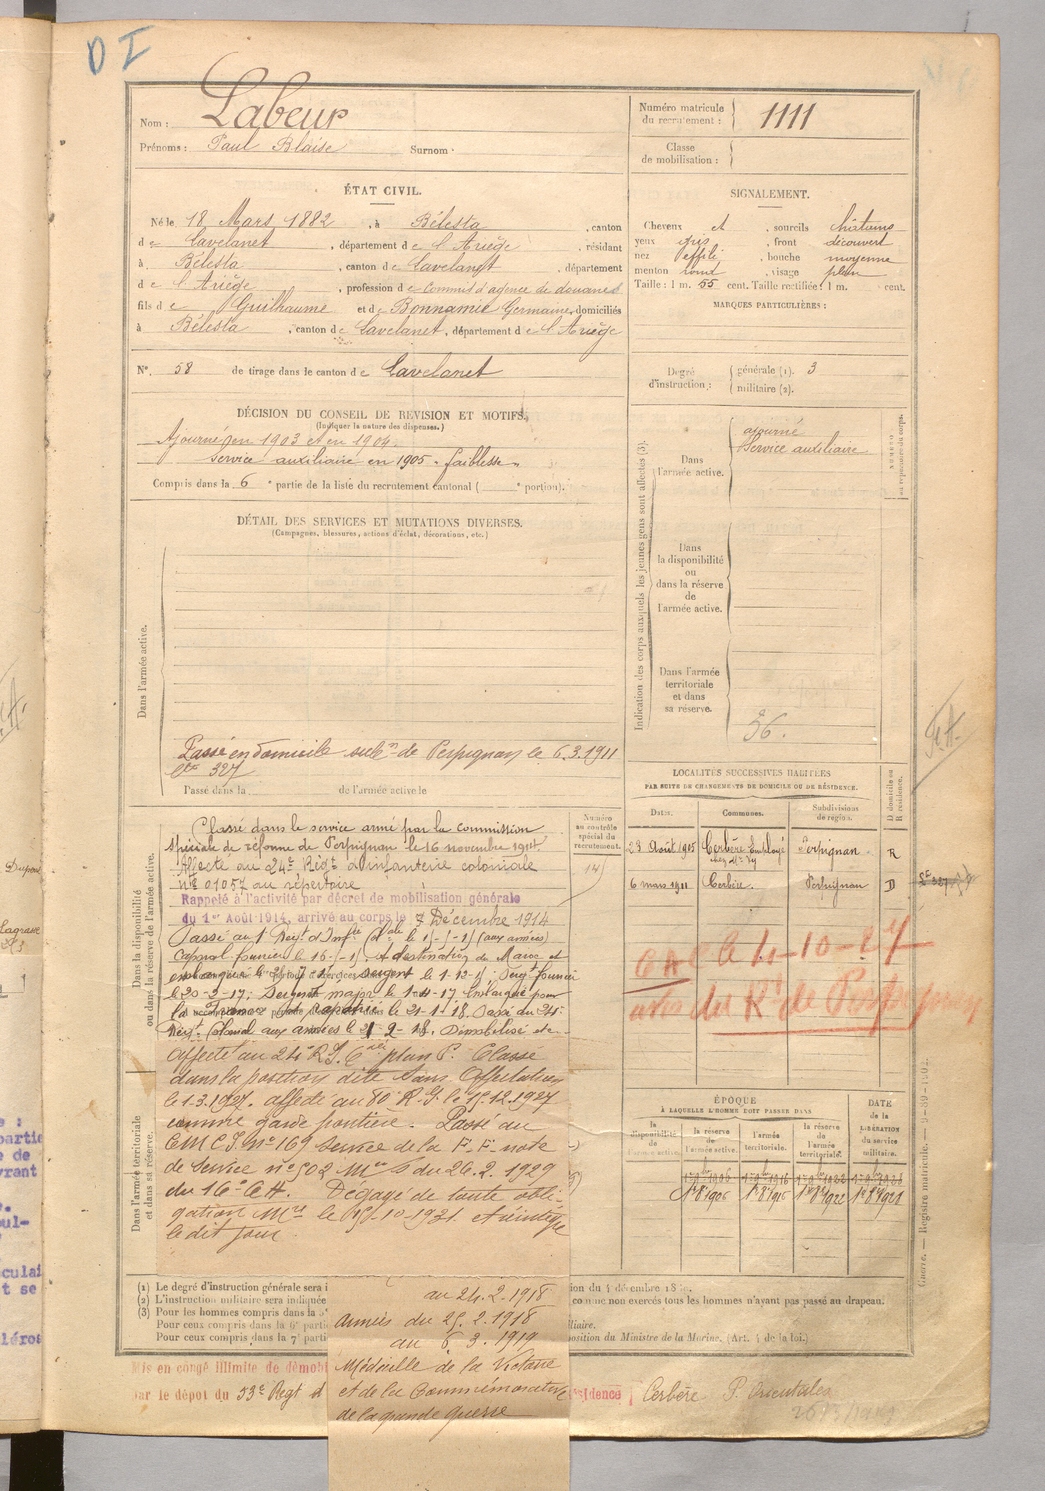 D I
Nom : Labeur
Prénoms : Paul Blaise Surnom :
Numéro matricule
du recrutement : 1111
Classe
de mobilisation :
ÉTAT CIVIL.
Né le 18 Mars 1882, à Bélesta, canton
de Lavelanet, département de l'Ariège, résidant
à Bélesta, canton de Lavelanet, département
de l'Ariège, profession de Commis d'agence de douanes
fils de Guilhaume et de Bonnamic Germaine, domiciliés
à Bélesta, canton de Lavelanet, département de l'Ariège
N°. 58 de tirage dans le canton de Lavelanet
SIGNALEMENT.
Cheveux et, sourcils châtains
yeux gris, front découvert
nez effilé, bouche moyenne
menton rond, visage plein
Taille : 1 m. 55 cent. Taille rectifiée : 1 m. cent.
MARQUES PARTICULIÈRES :
Degré
d'instruction : générale (1). 3
militaire (2).
DÉCISION DU CONSEIL DE REVISION ET MOTIFS.
(Indiquer la nature des dispenses.)
Ajourné en 1903 et en 1904.
service auxiliaire en 1905 - faiblesse -
Compris dans la 6e partie de la liste du recrutement cantonal ( e portion).
DÉTAIL DES SERVICES ET MUTATIONS DIVERSES.
(Campagnes, blessures, actions d'éclat, décorations, etc.)
Dans l'armée active.
Passé en domicile subon de Perpignan le 6.3.1911
327
Passé dans la de l'armée active le
Indication des corps auxquels les jeunes gens sont affectés (3).
Dans
l'armée active.
ajourné
Service auxiliaire
NUMÉRO
au répertoire du corps.
Dans
la disponibilité
ou
dans la réserve
de
l'armée active.
Dans l'armée
territoriale
et dans
sa réserve.
36.
LOCALITÉS SUCCESSIVES HABITÉES
PAR SUITE DE CHANGEMENTS DE DOMICILE OU DE RÉSIDENCE.
Dates. Communes. Subdivisions
de région. D domicile ou
R résidence.
28 Août 1905 Cerbère Employé Perpignan R
6 mars 1911 Cerbère. Perpignan D
le 4-10-27
du Rt de Perpignan
Dans la disponibilité
ou dans la réserve de l'armée active.
Numéro
au contrôle
spécial du
recrutement.
Classé dans le service armé par la commission
spéciale de réforme de Perpignan le 16 novembre 1914
Affecté au 24e Régt d'infanterie coloniale
n° 01057 au répertoire
Rappelé à l'activité par décret de mobilisation générale
du 1er Août 1914, arrivé au corps le 7 Décembre 1914
(aux armées)
à destination du Maroc et
sergent le 1-12-
le 30-3-17; Sergent major le 1-4-17
la France rapatrié le 21-1-18. Passé du 24e
Régt Colonial aux armées le 21-2-18. Démobilisé
Dans l'armée territoriale
et dans sa réserve.
affecté au 24e R.I. plan P. Classé
dans la position dite sans affectation
le 1.3.1927. affecté au 80e R.I. le 15.12.1927
comme garde frontière. Passé au
C.M.C.F. n° 169 service de la F.F. note
de service n° 502 du 26.2.1929
du 16e C.A. Dégagé de toute obli-
gation Mre le 15-10-1931 et réintégré
le dit jour.
ÉPOQUE
À LAQUELLE L'HOMME DOIT PASSER DANS
la
disponibilité
de
l'armée active.
la
réserve de
l'armée active.
l'armée
territoriale.
la réserve
de
l'armée
territoriale.
DATE
de la
LIBÉRATION
du service
militaire.
(1) Le degré d'instruction générale sera i
(2) L'instruction militaire sera indiquée
(3) Pour les hommes compris dans la 5e
Pour ceux compris dans la 6e parti
Pour ceux compris dans la 7e parti
comme non exercés tous les hommes n'ayant pas passé au drapeau.
iliaire.
position du Ministre de la Marine. (Art. 4 de la loi.)
au 24.2.1918
Armées du 25.2.1918
au 6.3.1919
Médaille de la Victoire
et de la Commémorative
de la grande Guerre
Mis en congé illimité de démobi
par le dépôt du 53e Régt d sidence Cerbère P. Orientales